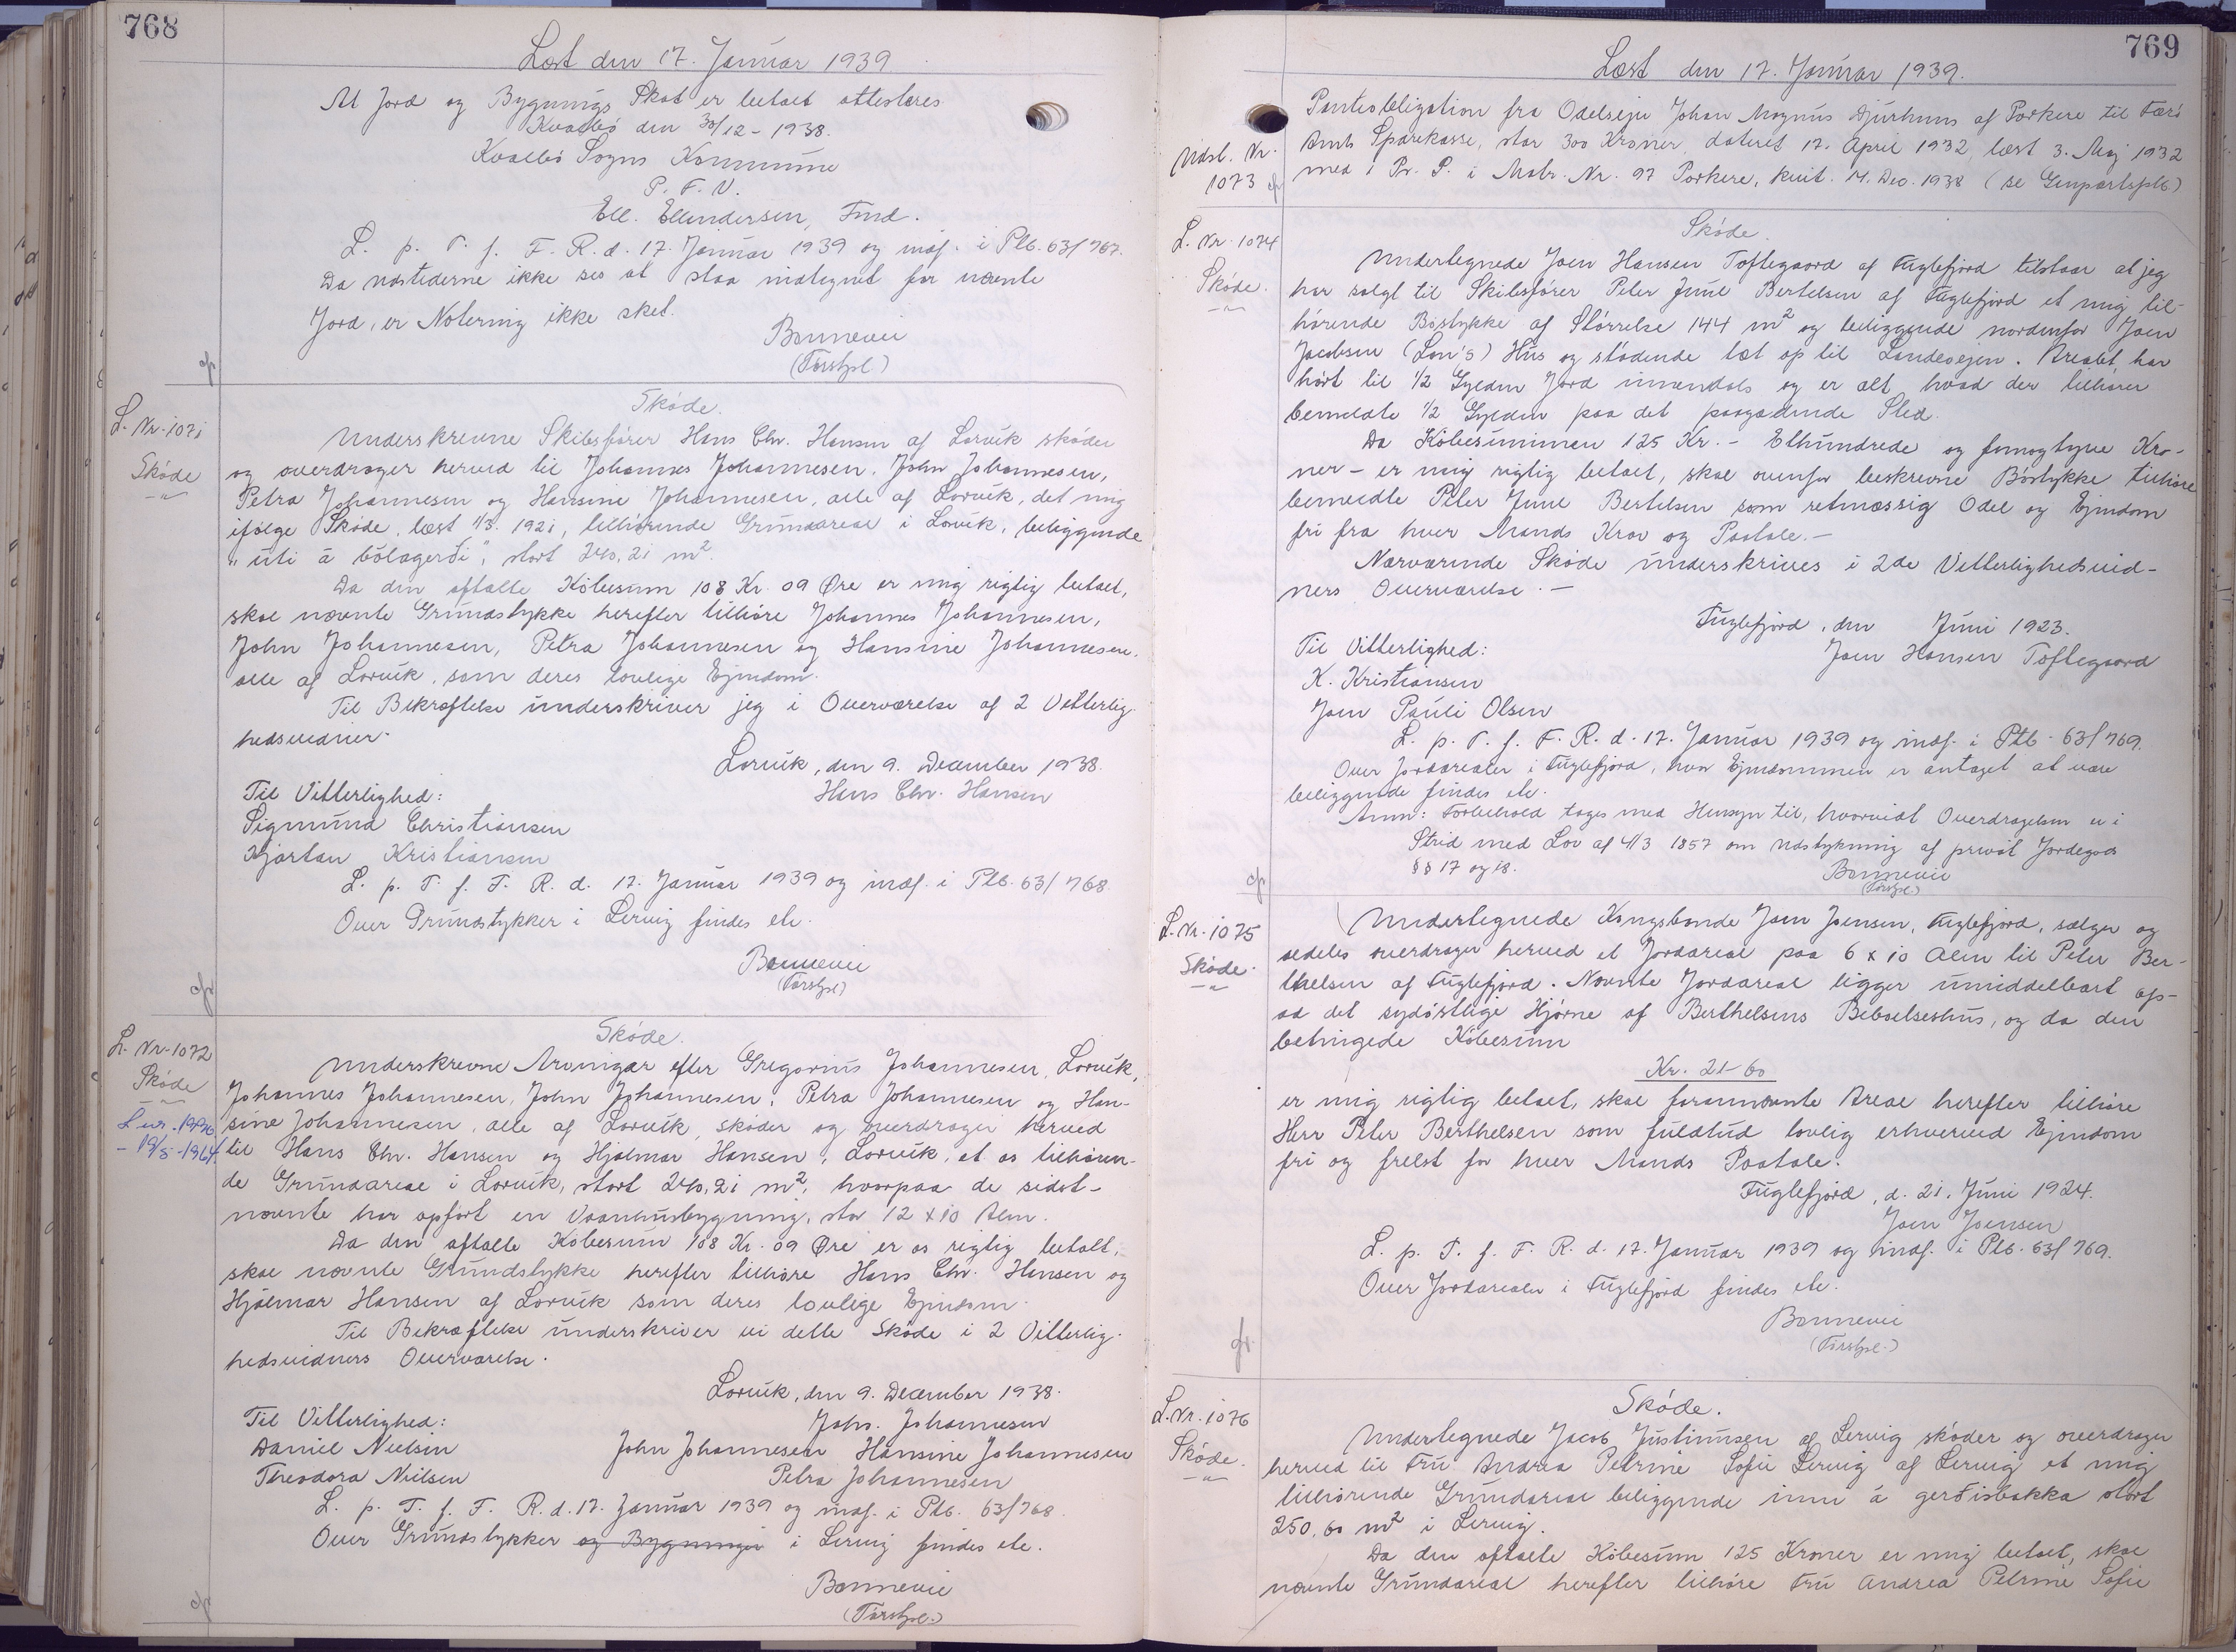 768
Læst den 17. Januar 1939
At Jord og Bygnings Skat er betalt attesteres
Kvalbö den 30/12 - 1938.
Kvalbö Sogns Kommune
P. F. V.
Ell. Ellendersen, Fmd.
L. p. T. f. F. R. d. 17. Januar 1939 og indf. i Ptb. 63/767.
Da Udstederne ikke ses at staa indtegnet for nævnte
Jord, er Notering ikke sket.
Bonnevie
(Fórstfvl)
L. Nr. 1071
Skóde
Skóde.
Underskrevne Skibsfører Hans Chr. Hansen af Lorvík skóder
og overdrager herved til Johannes Johannesen, John Johannesen,
Petra Johannesen og Hansine Johannesen, alle af Lorvík, det mig
ifölge Skóde, læst 1/3. 1921, tilhörende Grundareal i Lorvík, beliggende
"úti á bólagerði", stort 240,21 m².
Da den aftalte Köbesum 108 Kr. 09 Øre er mig rigtig betalt,
skal nævnte Grundstykke herefter tilhöre Johannes Johannesen,
John Johannesen, Petra Johannesen og Hansine Johannesen.
alle af Lorvík, som deres lovlige Ejendom.
Til Bekræftelse underskriver jeg i Overværelse af 2 Vitterlig-
hedsvidner.
Lorvík, den 9. December 1938.
Til Vitterlighed:
Hans Chr. Hansen
Sigmund Christiansen
Kjartan Kristiansen
L. p. T. f. F. R. d. 17. Januar 1939 og indf. i Ptb. 63/768
Over Grundstykker i Lervig findes etc.
Bonnevie
(Fórstfvl)
L. Nr. 1072
Skóde
L nr. 1946
- 19/5 - 1964.
Skóde.
Underskrevne Arvingar efter Gregorius Johannesen, Lorvík,
Johannes Johannesen, John Johannesen, Petra Johannesen og Han-
sine Johannesen, alle af Lorvík, skóder og overdrager herved
til Hans Chr. Hansen og Hjalmar Hansen, Lorvík, et os tilhören-
de Grundareal i Lorvík, stort 240,21 m², hvorpaa de sidst-
nævnte har opført en Vaanhusbygning, stor 12 x 10 Alen.
Da den aftalte Köbesum 108 Kr. 09 Øre er os rigtig betalt,
skal nævnte Grundstykke herefter tilhöre Hans Chr. Hansen og
Hjalmar Hansen af Lorvík som deres lovlige Ejendom.
Til Bekræftelse underskriver vi dette Skóde i 2 Vitterlig-
hedsvidners Overværelse.
Lorvík, den 9. December 1938.
Til Vitterlighed:
Johs. Johannesen
Daniel Nielsen
John Johannesen Hansine Johannesen
Theodora Nielsen
Petra Johannesen
L. p. T. f. F. R. d. 17. Januar 1939 og indf. i Ptb. 63/768
Over Grundstykker og Bygninger i Lervig findes etc.
Bonnevie
(Fórstfvl.)
769
Læst den 17. Januar 1939.
Udsl. Nr.
1073
Panteobligation fra Odelsejer Johan Magnus Djurhuus af Porkere til Færö
Amts Sparekasse, stor 300 Kroner, dateret 17. April 1932, læst 3. Maj 1932
med 1 Pr. P. i Matr. Nr. 97 Porkere, kvit. 14. Dec. 1938 (se Genpartsptb)
L. Nr. 1074
Skóde.
Skóde.
Undertegnede Joen Hansen Toftegaard af Fuglefjord tilstaar at jeg
har solgt til Skibsfører Peter Juul Bertelsen af Fuglefjord et mig til-
hörende Böstykke af Störrelse 144 m² og beliggende nordenfor Joen
Jacobsen (Lon's) Hus og stödende tæt op til Landevejen. Arealet har
hört til 1/2 Gylden Jord innendals og er alt, hvad der tilhører
bemeldte 1/2 Gylden paa det paagældende Sted.
Da Köbesummen 125 Kr. - Ethundrede og femogtyve Kro-
ner - er mig rigtig betalt, skal ovenfor beskrevne Böstykke tilhöre
bemeldte Peter Juul Bertelsen som retmæssig Odel og Ejendom
fri fra hver Mands Krav og Paatale. -
Nærværende Skóde underskrives i 2de Vitterlighedsvid-
ners Overværelse. -
Fuglefjord, den Juni 1923.
Til Vitterlighed:
Joen Hansen Toftegaard
K. Kristiansen
Joen Pauli Olsen
L. p. T. f. F. R. d. 17. Januar 1939 og indf. i Ptb. 63/769.
Over Jordarealer i Fuglefjord, hvor Ejendommen er antaget at være
beliggende findes etc.
Anm: Forbehold tages med Hensyn til, hvorvidt Overdragelsen er i
Strid med Lov af 4/3 1857 om Udstykning af privat Jordegods
§§ 17 og 18.
Bonnevie
(Fórstfvl)
L. Nr. 1075
Skóde.
Undertegnede Kongsbonde Joen Joensen, Fuglefjord, sælger og
sedeles overdrager herved et Jordareal paa 6 x 10 Alen til Peter Ber-
thelsen af Fuglefjord. Nævnte Jordareal ligger umiddelbart op-
ad det sydöstlige Hjørne af Berthelsens Beboelseshus, og da den
betingede Köbesum
Kr. 21-60
er mig rigtig betalt, skal forannævnte Areal herefter tilhöre
Herr Peter Berthelsen som fuldtud lovlig erhvervet Ejendom
fri og frelst for hver Mands Paatale.
Fuglefjord, d. 21. Juni 1924.
Joen Joensen
L. p. T. f. F. R. d. 17. Januar 1939 og indf. i Ptb. 63/769.
Over Jordarealer i Fuglefjord findes etc.
Bonnevie
(Fórstfvl.)
L. Nr. 1076
Skóde.
Skóde.
Undertegnede Jacob Justinussen af Lervig skóder og overdrager
herved til Fru Andrea Petrine Sofie Lervig af Lervig et mig
tilhörende Grundareal beliggende inni á gerðisbakka stort
250,60 m² i Lervig.
Da den aftalte Köbesum 125 Kroner er mig betalt, skal
nævnte Grundareal herefter tilhöre Fru Andrea Petrine Sofie